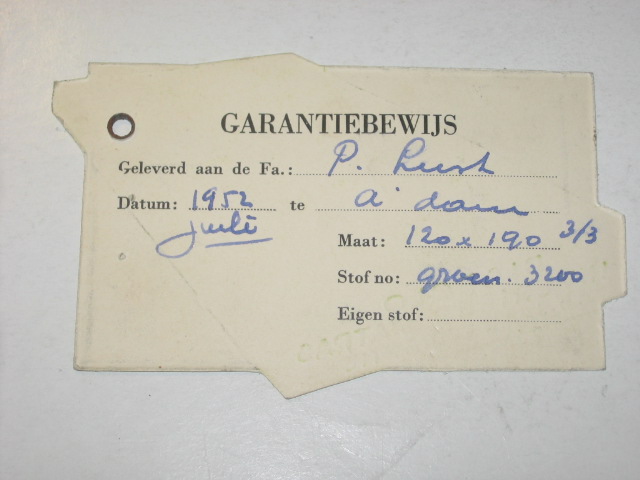 GARANTIEBEWIJS
Geleverd aan de Fa.: P. Rust
Datum: 1952 te A'dam
juli
Maat: 120 x 190 3/3
Stof no: groen. 3200
Eigen stof: